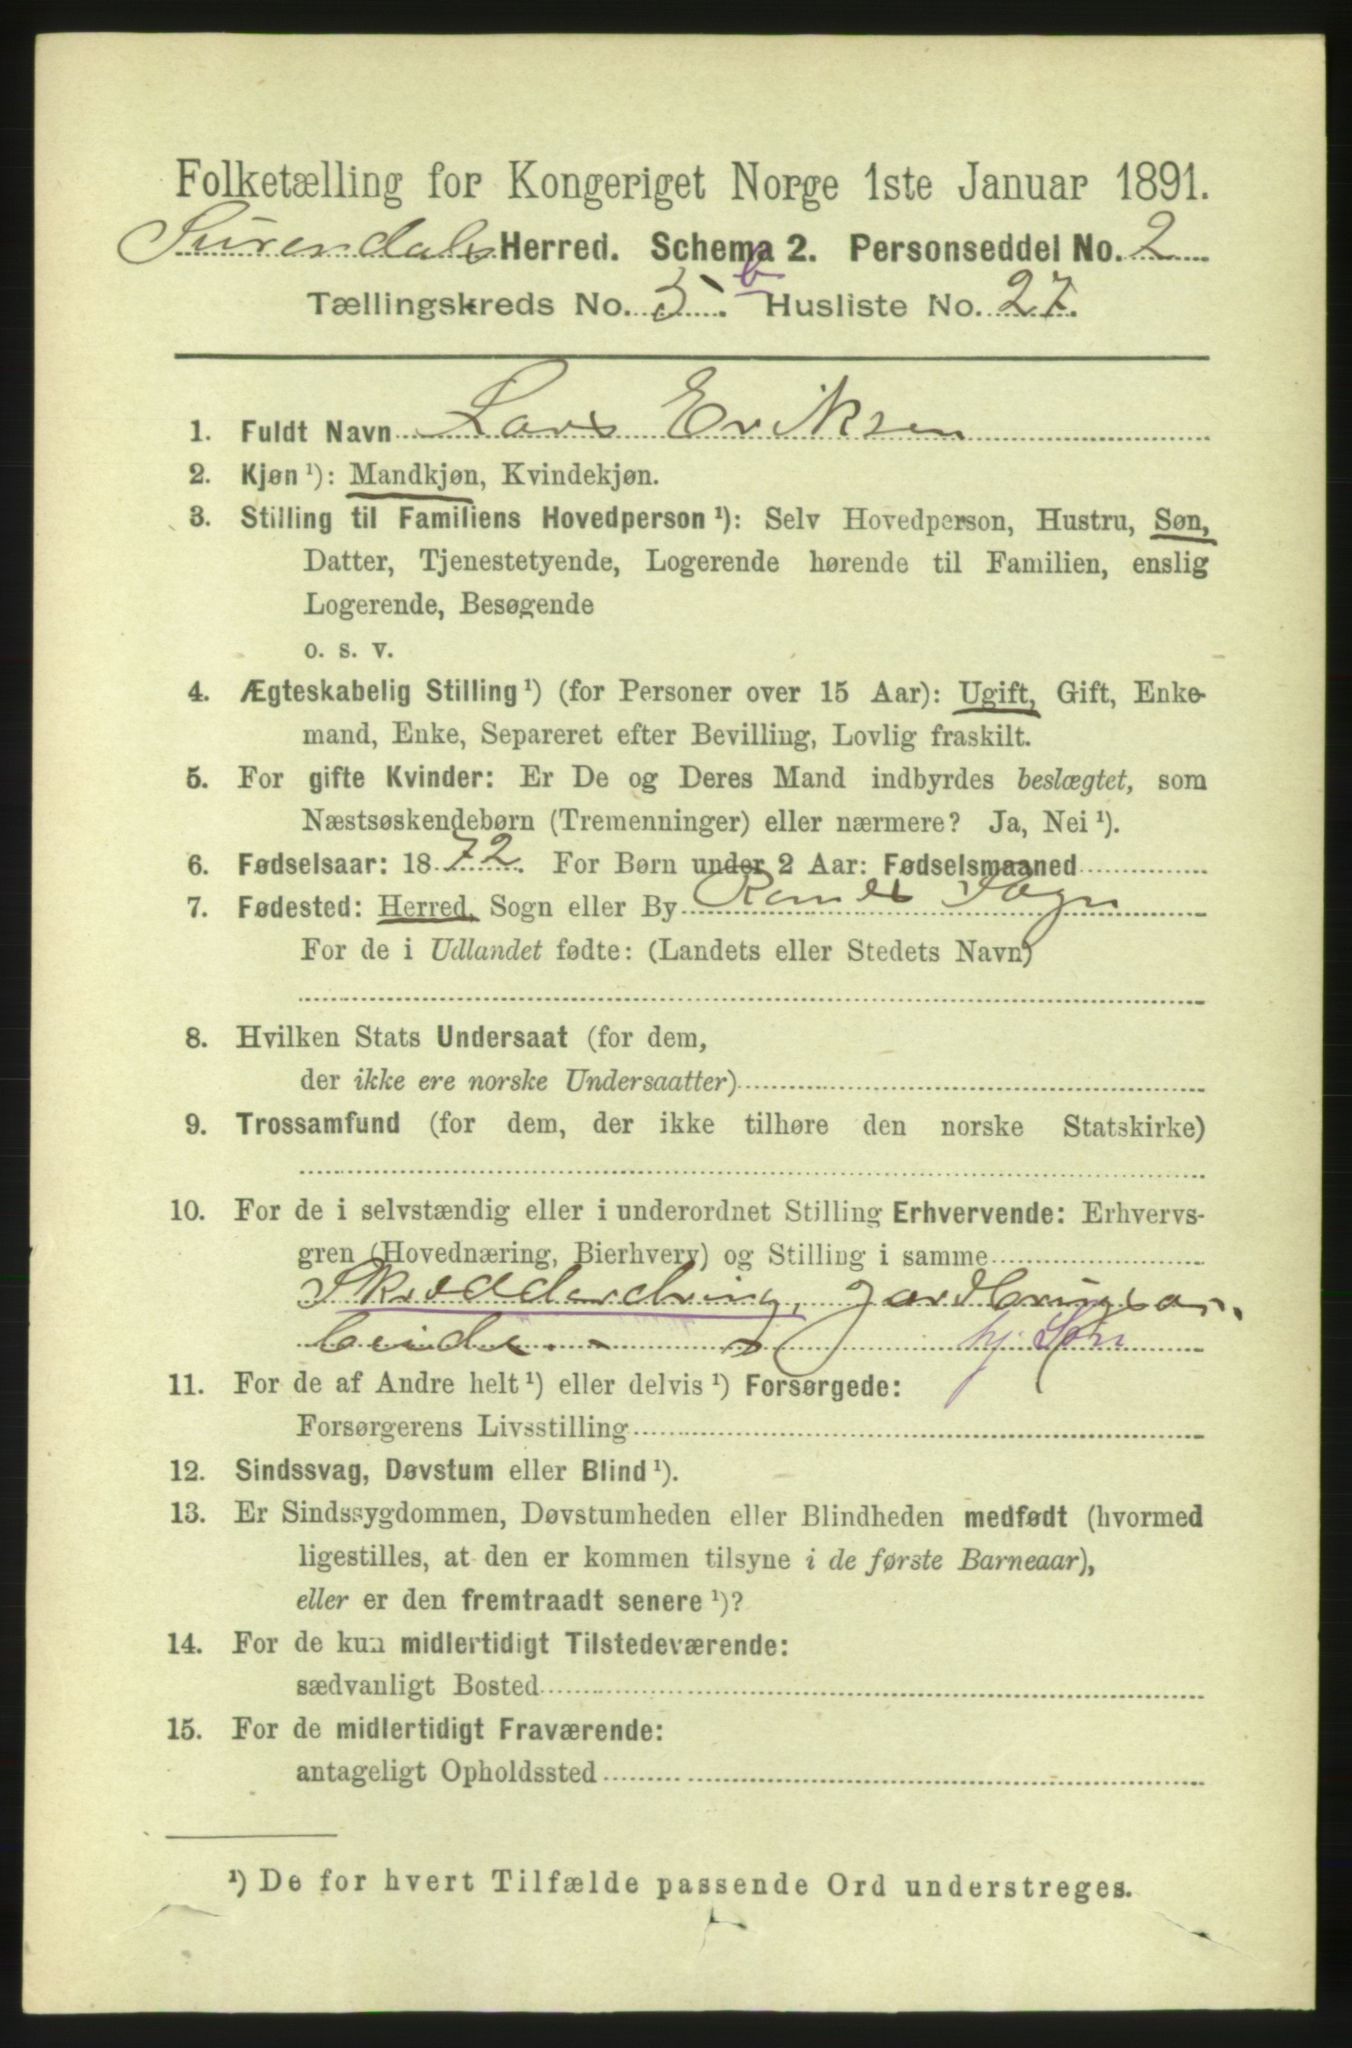 Folketælling for Kongeriget Norge 1ste Januar 1891.
Surendals Herred. Schema 2. Personseddel No. 2
Tællingskreds No. 5. b Husliste No. 27.
1. Fuldt Navn Lars Eriksen
2. Kjøn ¹): Mandkjøn, Kvindekjøn.
3. Stilling til Familiens Hovedperson ¹): Selv Hovedperson, Hustru, Søn,
Datter, Tjenestetyende, Logerende hørende til Familien, enslig
Logerende, Besøgende
o. s. v.
4. Ægteskabelig Stilling ¹) (for Personer over 15 Aar): Ugift, Gift, Enke-
mand, Enke, Separeret efter Bevilling, Lovlig fraskilt.
5. For gifte Kvinder: Er De og Deres Mand indbyrdes beslægtet, som
Næstsøskendebørn (Tremenninger) eller nærmere? Ja, Nei ¹).
6. Fødselsaar: 18 72. For Børn under 2 Aar: Fødselsmaaned
7. Fødested: Herred, Sogn eller By Ranes Sogn
For de i Udlandet fødte: (Landets eller Stedets Navn)
8. Hvilken Stats Undersaat (for dem,
der ikke ere norske Undersaatter)
9. Trossamfund (for dem, der ikke tilhøre den norske Statskirke)
10. For de i selvstændig eller i underordnet Stilling Erhvervende: Erhvervs-
gren (Hovednæring, Bierhverv) og Stilling i samme
Skrædderdring, Jordbrugsar-
beide hj. Søn
11. For de af Andre helt ¹) eller delvis ¹) Forsørgede:
Forsørgerens Livsstilling
12. Sindssvag, Døvstum eller Blind ¹).
13. Er Sindssygdommen, Døvstumheden eller Blindheden medfødt (hvormed
ligestilles, at den er kommen tilsyne i de første Barneaar),
eller er den fremtraadt senere ¹)?
14. For de kun midlertidigt Tilstedeværende:
sædvanligt Bosted
15. For de midlertidigt Fraværende:
antageligt Opholdssted
¹) De for hvert Tilfælde passende Ord understreges.